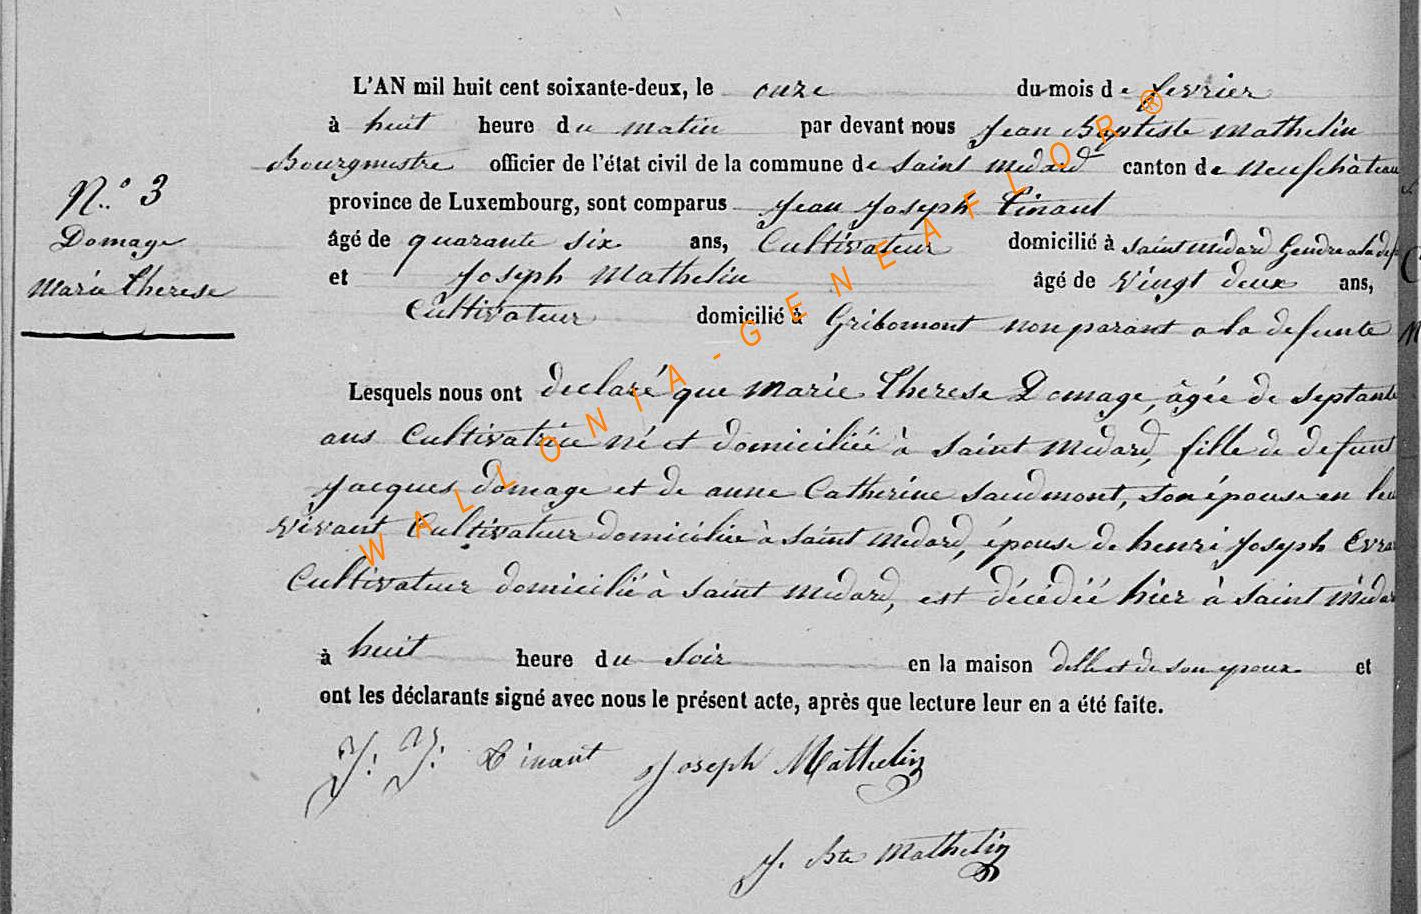 L'AN mil huit cent soixante-deux, le onze du mois de fevrier
à huit heure du matin par devant nous Jean Baptiste Mathelin
Bourgmestre officier de l'état civil de la commune de Saint Médard canton de Neufchâteau
N.° 3
province de Luxembourg, sont comparus Jean Joseph Tinant
Domage
âgé de quarante six ans, Cultivateur domicilié à Saint Médard Gendre a la def
Marie Therese
et Joseph Mathelin âgé de vingt deux ans,
Cultivateur domicilié à Gribomont non parant a la defunte
Lesquels nous ont declaré que Marie Therese Domage, âgée de septante
ans Cultivatrice né et domiciliée à Saint Médard, fille de defunt
Jacques Domage et de anne Catherine Saudmont, son épouse en leu
vivant Cultivateur domiciliée à Saint Médard, épouse de henri Joseph Evra
Cultivateur domicilié à Saint Médard, est décédée hier à Saint Médar
à huit heure du Soir en la maison d'elle et de son epoux et
ont les déclarants signé avec nous le présent acte, après que lecture leur en a été faite.
J: J: Tinant Joseph Mathelin
J. Bte Mathelin
WALLONIA-GENEAFLOR®